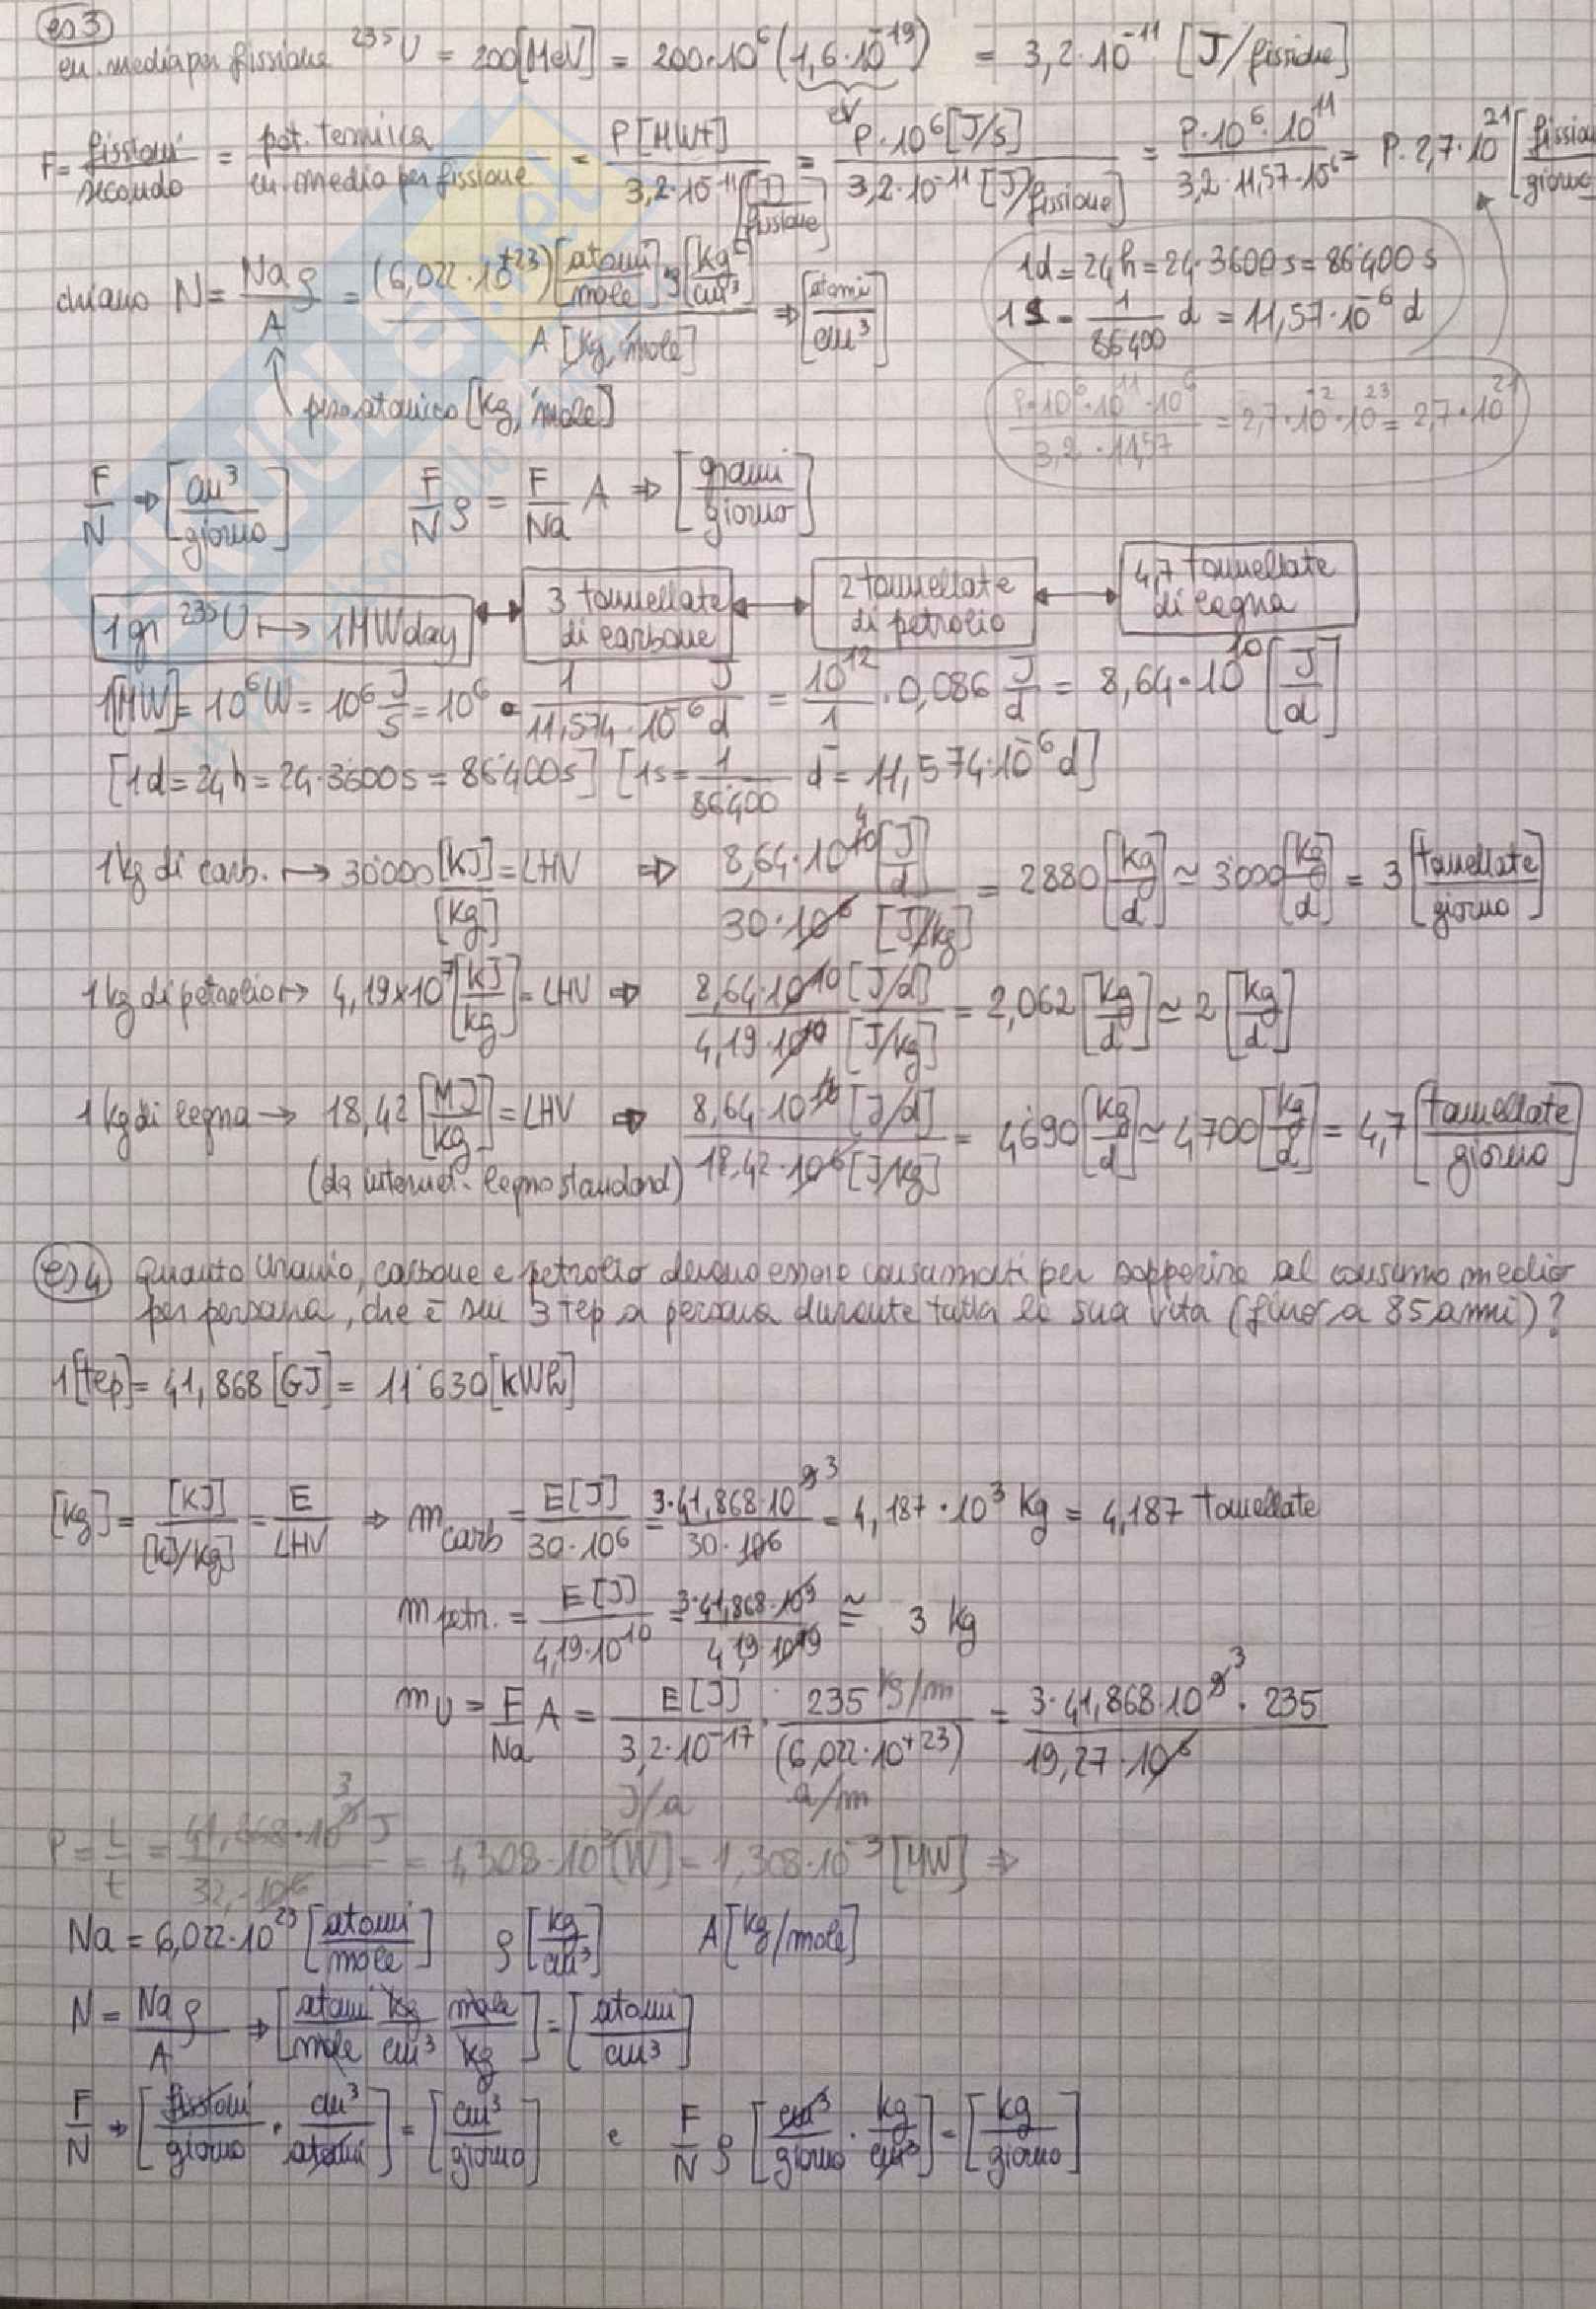 es 3
en. media per fissione ²³⁵U = 200 [MeV] = 200·10⁶ (1,6·10⁻¹⁹) = 3,2·10⁻¹¹ [J/fissione]
eV
F = fissioni/secondo = pot. termica/en. media per fissione = P [MWt]/3,2·10⁻¹¹ [J/fissione] = P·10⁶ [J/s]/3,2·10⁻¹¹ [J/fissione] = P·10⁶·10¹¹/3,2·11,57·10⁻⁶ = P·2,7·10²¹ [fissioni/giorno]
1d = 24h = 24·3600 s = 86'400 s
1s = 1/86400 d = 11,57·10⁻⁶ d
chiamo N = Na ρ/A = (6,022·10⁺²³) [atomi/mole] ρ [kg/cm³]/A [kg/mole] ⇒ [atomi/cm³]
peso atomico [kg/mole]
P·10⁶·10¹¹·10⁶/3,2·11,57 = 2,7·10⁻²·10²³ = 2,7·10²¹
F/N ⇒ [cm³/giorno] F/N ρ = F/Na A ⇒ [grammi/giorno]
1 gr ²³⁵U ↦ 1 MWday ↔ 3 tonnellate di carbone ↔ 2 tonnellate di petrolio ↔ 4,7 tonnellate di legna
1[MW] = 10⁶ W = 10⁶ J/s = 10⁶ · 1/11,574·10⁻⁶ J/d = 10¹²/1 · 0,086 J/d = 8,64·10¹⁰ [J/d]
[1d = 24h = 24·3600s = 86'400s] [1s = 1/86400 d = 11,574·10⁻⁶ d]
1 kg di carb. ↦ 30'000 [KJ]/[kg] = LHV ⇒ 8,64·10¹⁰ [J/d]/30·10⁶ [J/kg] = 2880 [kg/d] ≃ 3000 [kg/d] = 3 [tonnellate/giorno]
1 kg di petrolio ↦ 4,19×10⁷ [KJ/kg] = LHV ⇒ 8,64·10¹⁰ [J/d]/4,19·10¹⁰ [J/kg] = 2,062 [kg/d] ≃ 2 [kg/d]
1 kg di legna → 18,42 [MJ/kg] = LHV ⇒ 8,64·10¹⁰ [J/d]/18,42·10⁶ [J/kg] = 4'690 [kg/d] ≃ 4700 [kg/d] = 4,7 [tonnellate/giorno]
(da internet - legno standard)
es 4 Quanto Uranio, carbone e petrolio devono essere consumati per sopperire al consumo medio
per persona, che è sui 3 tep a persona durante tutta la sua vita (fino a 85 anni)?
1 [tep] = 41,868 [GJ] = 11'630 [kWh]
[kg] = [KJ]/[KJ/kg] = E/LHV ⇒ m carb = E [J]/30·10⁶ = 3·41,868·10⁹/30·10⁶ = 4,187·10³ kg = 4,187 tonnellate
m petr. = E [J]/4,19·10¹⁰ = 3·41,868·10⁹/4,19·10¹⁰ ≅ 3 kg
m U = F/Na A = E [J]/3,2·10⁻¹⁷ · 235 kg/m/(6,022·10⁺²³) = 3·41,868·10⁹·235/19,27·10⁶
J/a a/m
P = L/t = 41,868·10⁹ J/32,·10⁶ = 1,308·10³ [W] = 1,308·10⁻³ [MW] ⇒
Na = 6,022·10²³ [atomi/mole] ρ [kg/cm³] A [kg/mole]
N = Na ρ/A ⇒ [atomi/mole kg/cm³ mole/kg] = [atomi/cm³]
F/N ⇒ [fissioni/giorno · cm³/atomi] = [cm³/giorno] e F/N ρ [cm³/giorno · kg/cm³] = [kg/giorno]